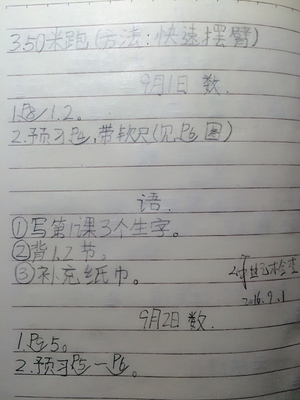 3.50米跑(方法:快速摆臂)
9月1日 数.
1.P3/1.2。
2.预习P4,带软尺(见P6图)
语.
①写第1课3个生字。
②背1、2节。
③补充纸巾。
2016.9.1
9月2日 数.
1.P5 5。
2.预习P5—P6。